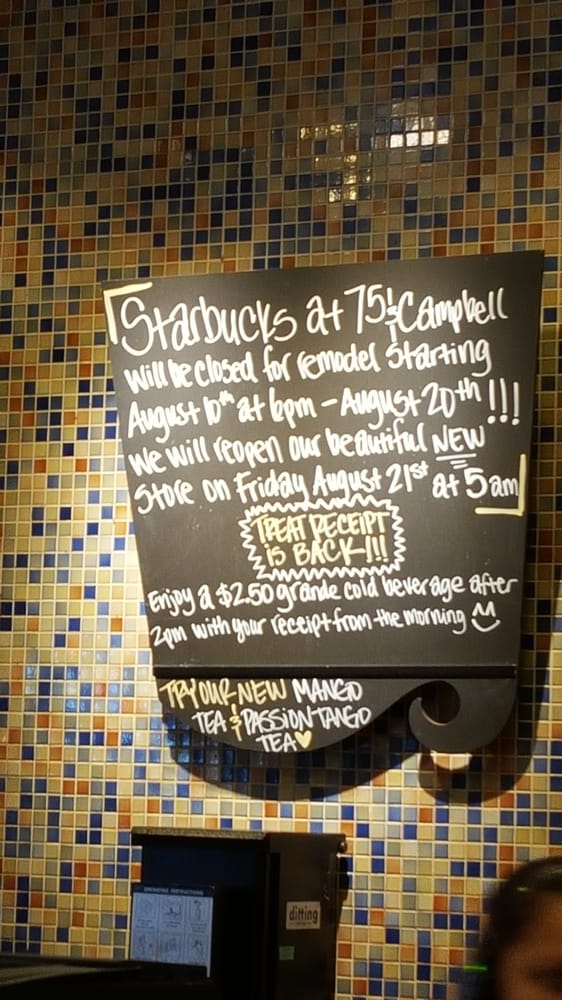 Starbucks at 75 & Campbell
Will be closed for remodel starting
August 10th at 6pm - August 20th !!!
We will reopen our beautiful NEW
Store on Friday August 21st at 5am
TREAT RECEIPT
is BACK!!!
Enjoy a $2.50 grande cold beverage after
2pm with your receipt from the morning
TRY OUR NEW MANGO
TEA & PASSION TANGO
TEA
OPERATING INSTRUCTIONS
ditting